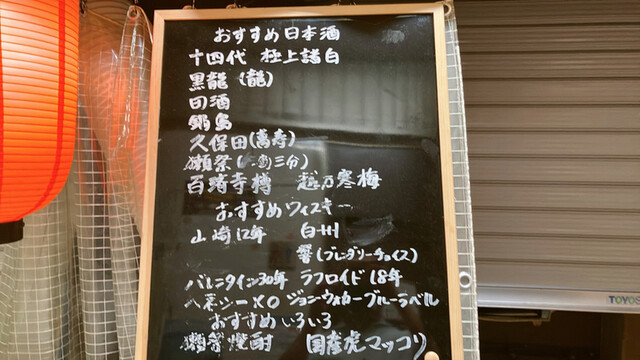 おすすめ日本酒
十四代 極上諸白
黒龍(龍)
田酒
鍋島
久保田(萬寿)
獺祭(二割三分)
越乃寒梅
おすすめウィスキー
山崎12年 白州
響(ブレンダリーチョイス)
バレンタイン30年 ラフロイド18年
ヘネシーXO ジョンウォカーブルーラベル
おすすめいろいろ
獺祭焼酎 国産虎マッコリ
TOYOS